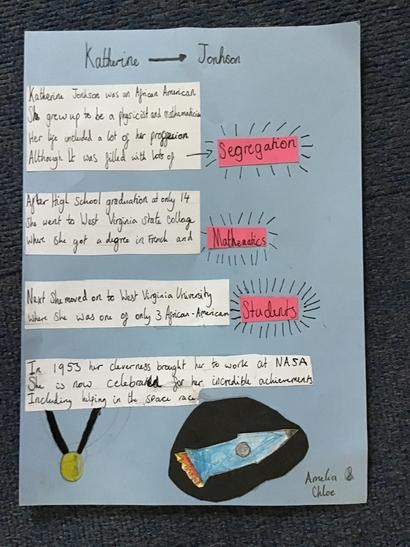 Katherine → Jonhson
Katherine Jonhson was an African American
She grew up to be a physicist and mathematician
Her life included a lot of her proffesion
Although It was filled with lots of → Segregation
After High school graduation at only 14
She went to West Virginia state collage
Where She got a degree in French and Mathematics
Next She moved on to West Virginia University
Where She was one of only 3 African-American Students
In 1953 her cleverness brought her to work at NASA
She is now celebrated for her incredible achievements
Including helping in the space race
Amelia &
Chloe